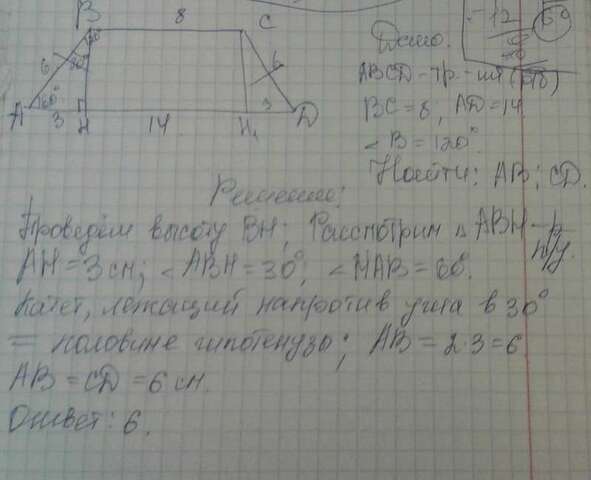 B
8
C
6
6
30°
60°
A
3
H
14
H₁
3
D
-12
69
Дано:
ABCD - тр.-ия (р/б)
BC = 8; AD = 14
∠B = 120°
Найти: AB; CD.
Решение:
Проведём высоту BH; Рассмотрим △ ABH - р п/у.
AH = 3 см; ∠ABH = 30°; ∠HAB = 60°.
Катет, лежащий напротив угла в 30°
= половине гипотенузы; AB = 2·3 = 6
AB = CD = 6 см.
Ответ: 6.